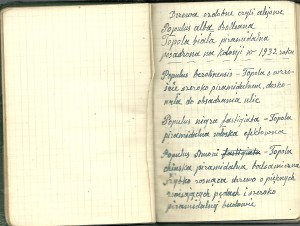 Drzewa ozdobne czyli alejowe
Populus alba Bolleana
Topola biała piramidalna
posadzona na kolonji w 1932 roku
Populus berolinensis - Topola o wzro-
ście szeroko piramidalnem, dosko-
nała do obsadzania ulic
Populus nigra fastigiata - Topola
piramidalna włoska efektowna
Populus Simoni fastigiata - Topola
chińska piramidalna, balsamiczna
Szybko rosnące drzewo o pięknych
zwisających pędach i szeroko
piramidalnej budowie